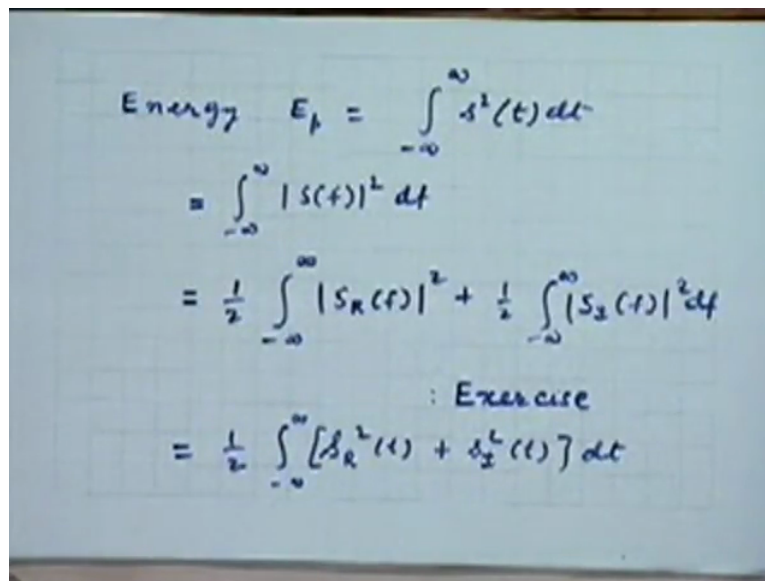 Energy E_p = ∫_{-∞}^{∞} s²(t) dt
= ∫_{-∞}^{∞} |S(f)|² df
= 1/2 ∫_{-∞}^{∞} |S_R(f)|² + 1/2 ∫_{-∞}^{∞} |S_I(f)|² df
: Exercise
= 1/2 ∫_{-∞}^{∞} [s_R²(t) + s_I²(t)] dt